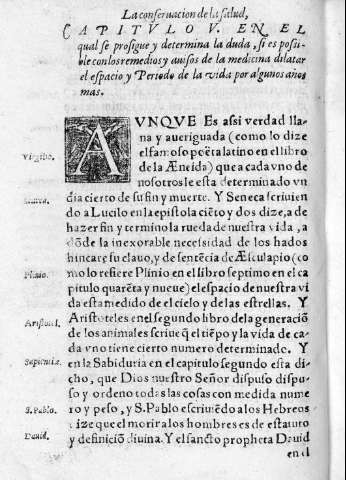 La conseruacion de la salud,
CAPITVLO V. EN EL
qual se prosigue y determina la duda, si es possi-
ble con los remedios y auisos de la medicina dilatar
el espacio y Periodo de la vida por algunos años
mas.
AVNQVE Es assi verdad lla-
na y aueriguada (como lo dize
el famoso poëta latino en el libro
de la Æneida) que a cada vno de
nosotros le esta determinado vn
dia cierto de su fin y muerte. Y Seneca scriuien
do a Lucilo en la epistola ciẽto y dos dize, a de
hazer fin y termino la rueda de nuestra vida, a
dõde la inexorable necessidad de los hados
hincare su clauo, y de sentẽcia de Æsculapio (co
mo lo refiere Plinio en el libro septimo en el ca
pitulo quarẽta y nueue) el espacio de nuestra vi
da esta medido de el cielo y de las estrellas. Y
Aristoteles en el segundo libro de la generaciõ
de los animales scriue q̃ el tiẽpo y la vida de ca
da vno tiene cierto numero determinado. Y
en la Sabiduria en el capitulo segundo esta di
cho, que Dios nuestro Señor dispuso dispu-
so y ordeno todas las cosas con medida nume
ro y peso, y S. Pablo escriuiẽdo a los Hebreos
dize que el morir a los hombres es de estatuto
y definiciõ diuina. Y el sancto propheta Dauid
en el
Virgilio.
Plinio.
Aristotel.
Sapientiæ.
S. Pablo.
Dauid.